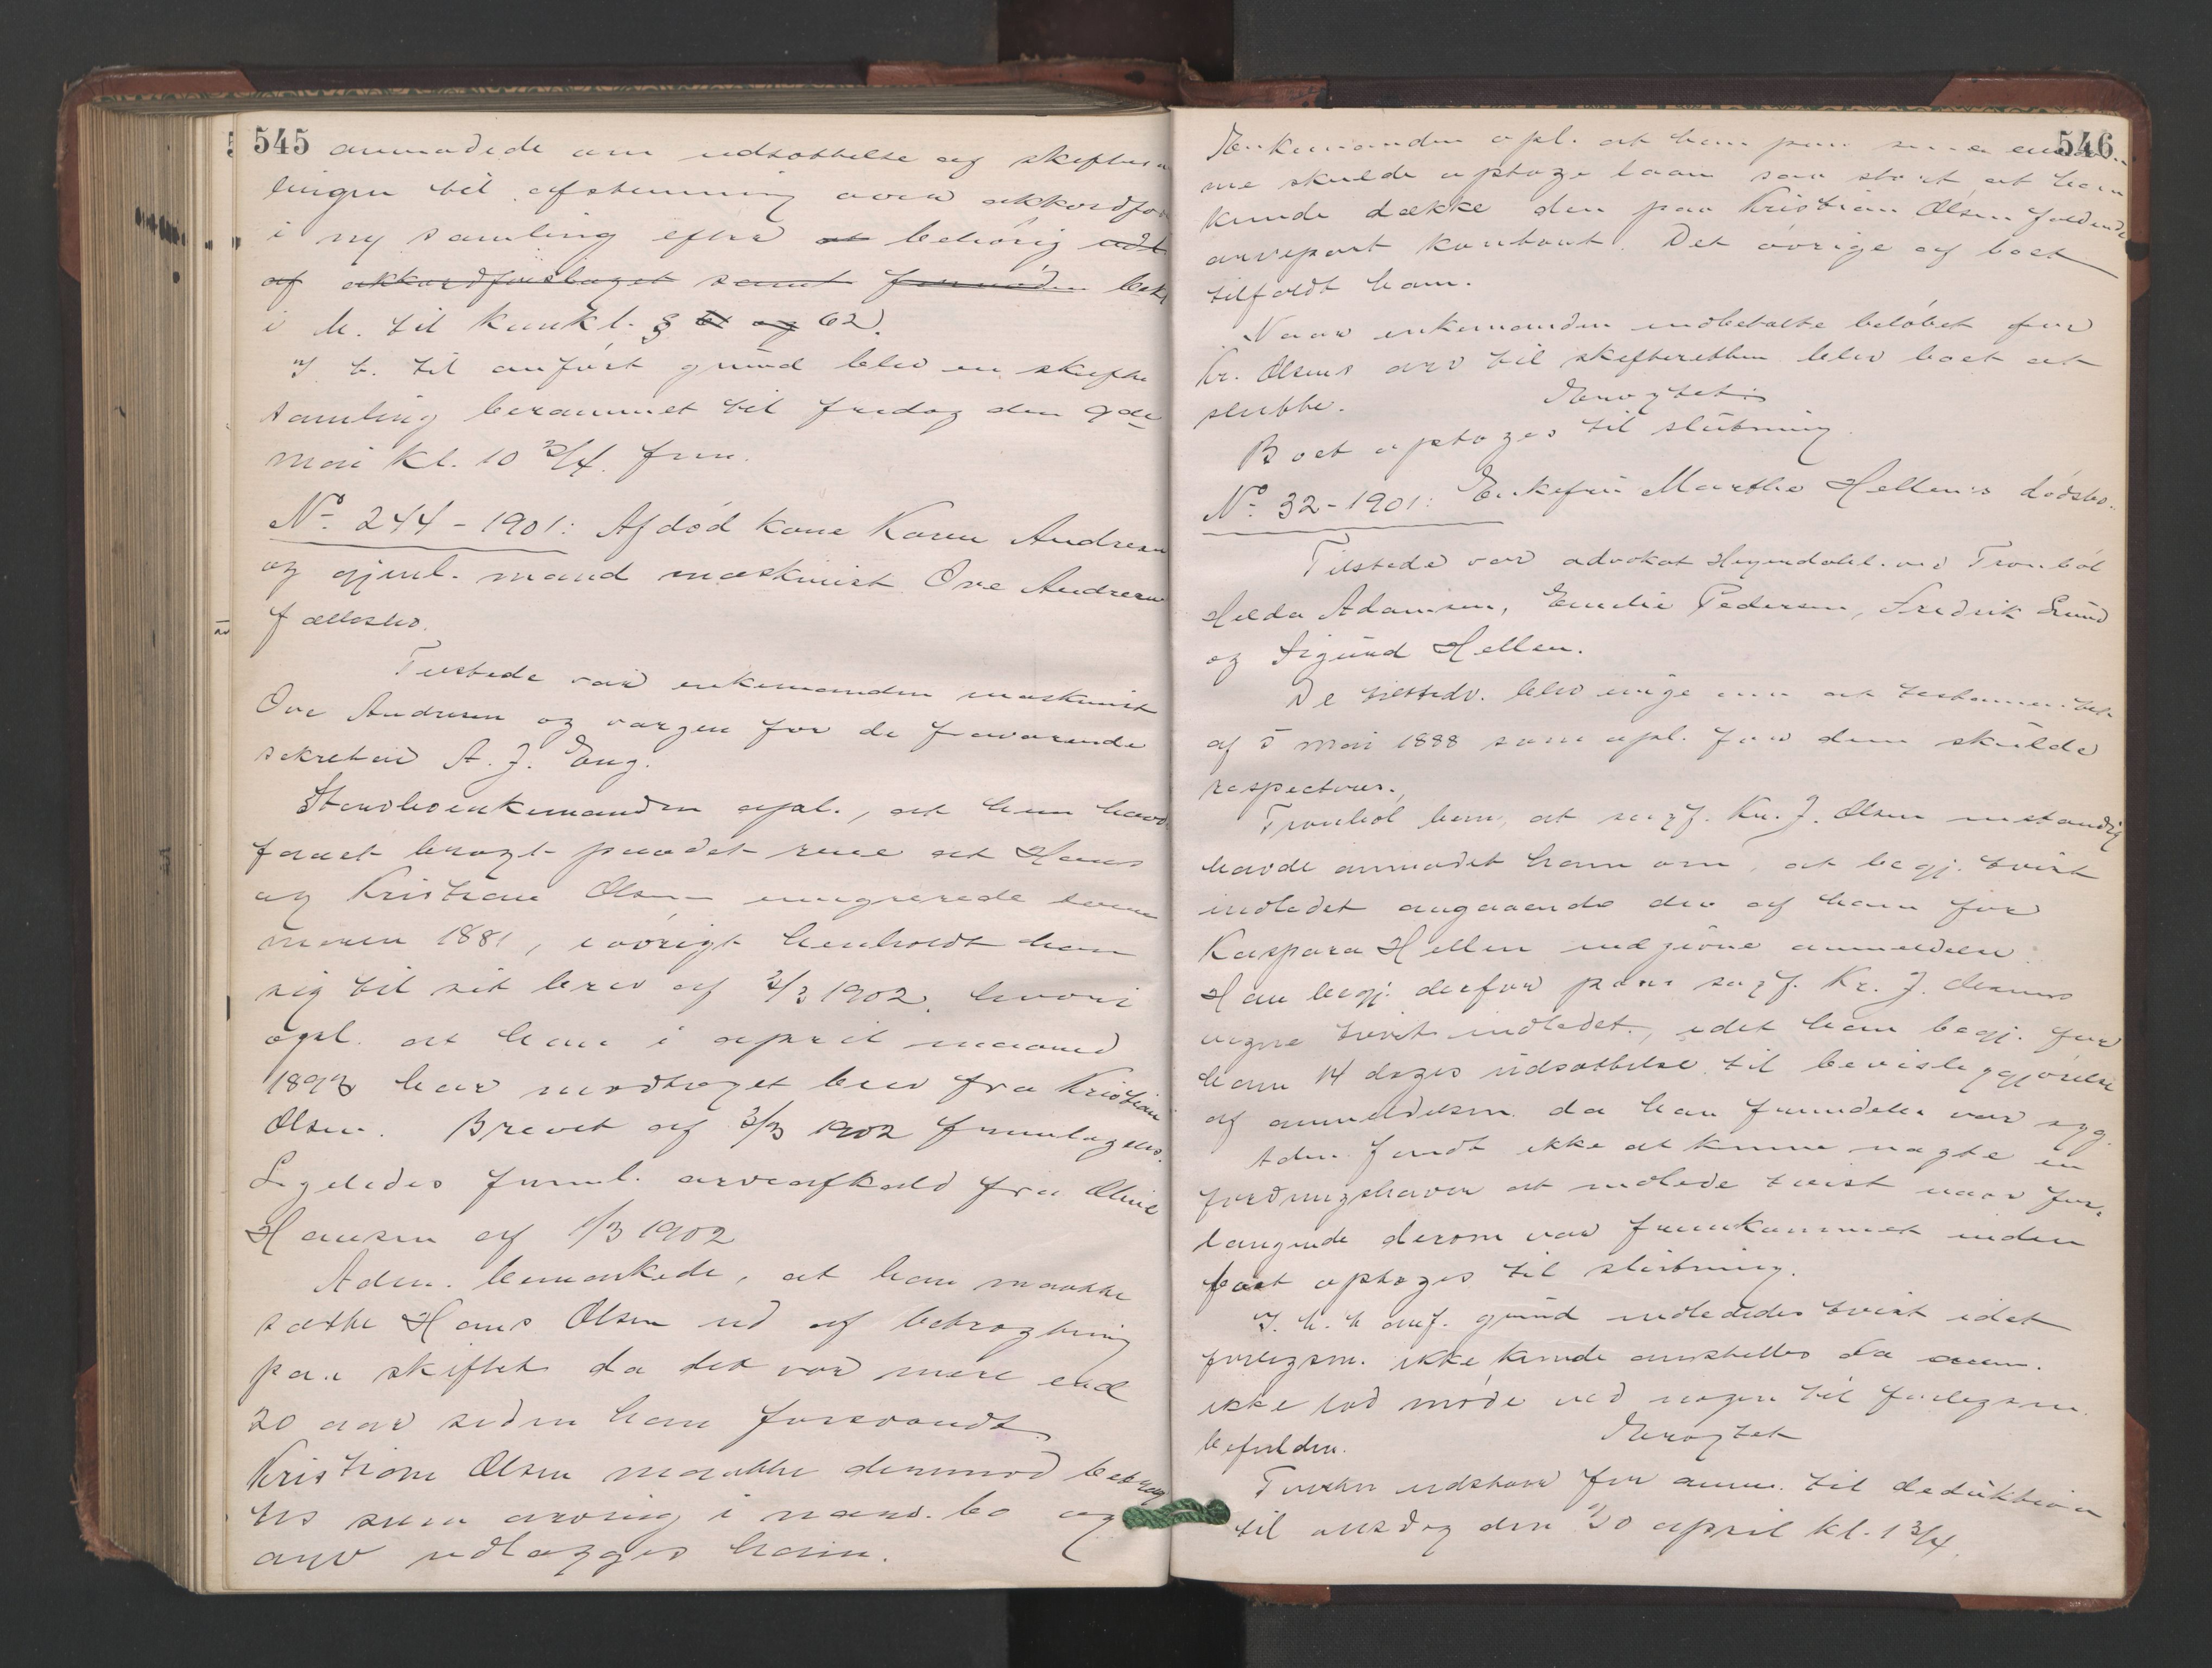 545
anmodede om udsættelse af skiftesam
lingen til afstemning over akkordfor
i ny samling efter at behørig udst
af akkordforslaget samt fornøden bek
i h. til konkl. § 61 og 62.
I h. til anført grund blev en skifte
samling berammet til fredag den 9de
mai kl. 10 3/4 frm.
No. 244 - 1901: Afdød kone Karen Andresen
og gjenl. mand maskinist Ove Andresen
fællesbo.
Tilstede var enkemanden maskinist
Ove Andresen og værgen for de fraværende
sekretær A. J. Eng.
Stervboenkemanden opl., at han havde
faaet bragt paa det rene at Hans
og Kristian Olsen emigrerede
1881, iøvrigt henholdt han
sig til sit brev af 3/3 1902, hvori
opl. at han i april maaned
1898 har modtaget brev fra Kristian
Olsen. Brevet af 3/3 1902 fremlagdes.
Ligeledes freml. arveafkald fra Oline
Hansen af 1/3 1902
Adm. bemærkede, at han maatte
sætte Hans Olsen ud af betragtning
paa skiftet da det var mere end
20 aar siden han forsvandt
Kristian Olsen maatte derimod betrag
tes som arving i nærv. bo og
arv udlægges ham.
546
Enkemanden opl. at han paa sine
ne skulde optage laan saa stort at han
kunde dække den paa Kristian Olsen faldende
arvepart kontant. Det øvrige af boet
tilfaldt ham.
Naar enkemanden indbetalte beløbet for
Kr. Olsens arv til skifteretten blev boet at
slutte.
Eragtet:
Boet optages til slutning.
No. 32 - 1901: Enkefru Marthe Hellens dødsbo.
Tilstede var advokat Heyerdahl ved Tronbøl
Hilda Adamsen, Emilie Pedersen, Fredrik Lund
og Sigurd Hellen.
De tilstedv. blev enige om at testamentet
af 5 mai 1888 som opl. for dem skulde
respecteres.
Tronbøl bem. at sagf. Kr. J. Olsen instændig
havde anmodet ham om, at begj. tvist
indledet angaaende den af ham for
Kaspara Hellen indgivne anmeldelse.
Han begj. derfor paa sagf. Kr. J. Olsens
vegne tvist indledet, idet han begj. for
ham 14 dages udsættelse til bevisliggjørelse
af anmeldelsen da han fremdeles var syg.
Adm. fandt ikke at kunne nægte en
fordringshaver at indlede tvist naar for-
langende derom var fremkommet inden
boet optages til slutning.
I h. t. anf. grund indlededes tvist idet
forligsm. ikke kunde anstilles da anm.
ikke lod møde ved nogen til forligsm.
befuldm.
Eragtet
Tvisten udstaar for anm. til deduktion
til onsdag den 30 april kl. 1 3/4.